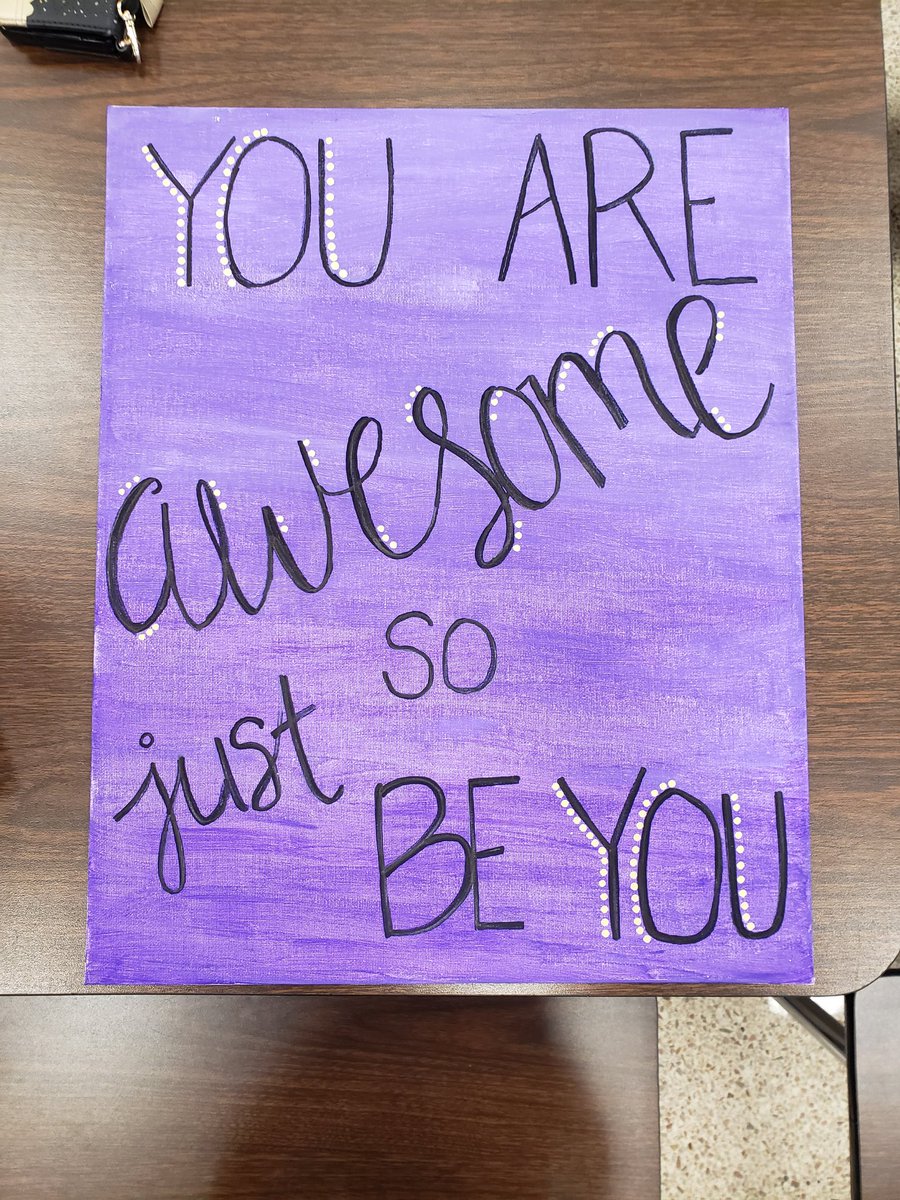 YOU ARE
awesome
SO
just
BE YOU